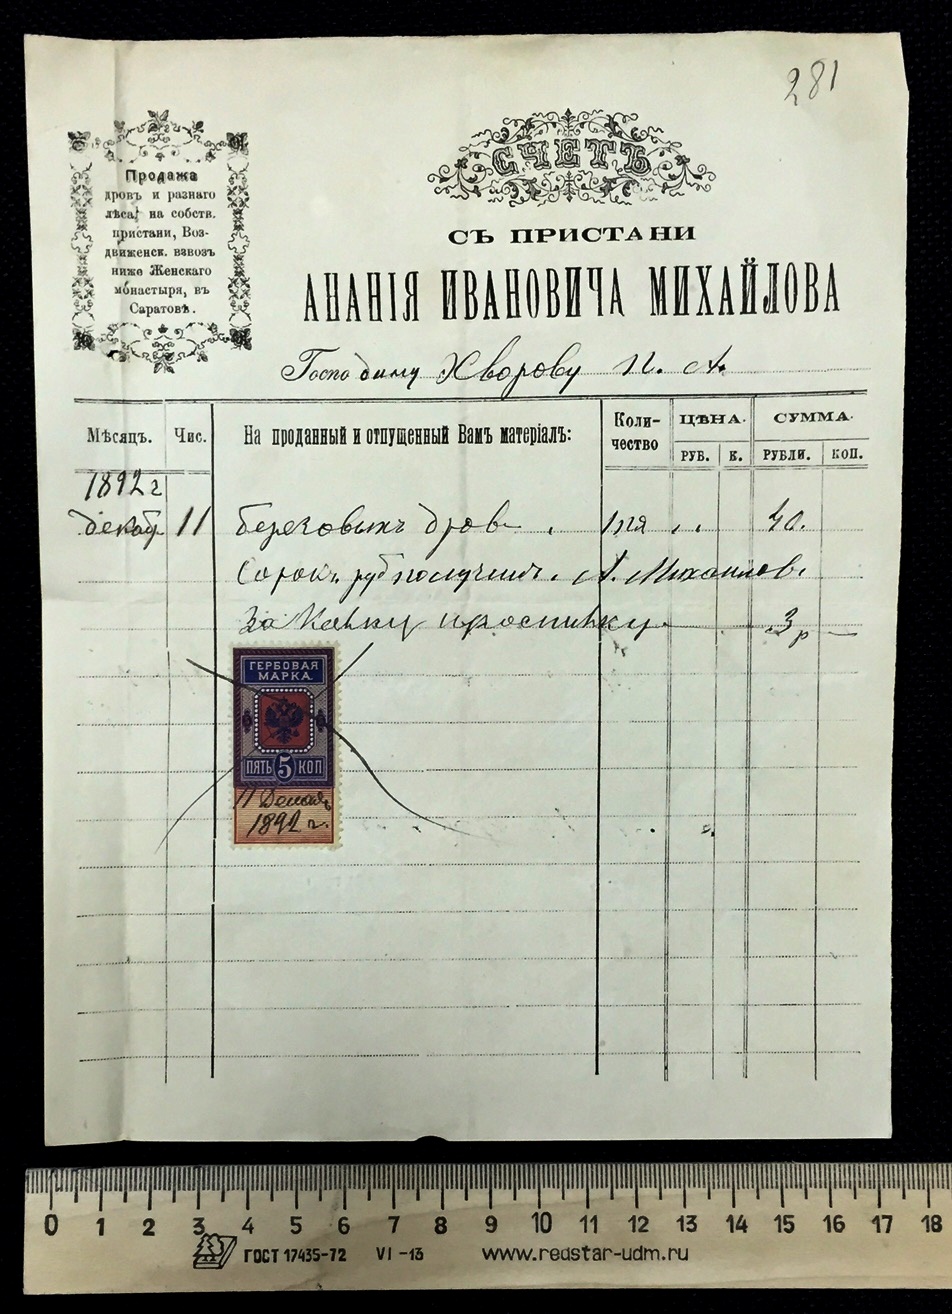 281
Продажа
дровъ и разнаго
лѣса, на собств.
пристани, Воз-
движенск. взвозъ
ниже Женскаго
монастыря, въ
Саратовѣ.
СЧЕТЪ
СЪ ПРИСТАНИ
АНАНІЯ ИВАНОВИЧА МИХАЙЛОВА
Господину Хворову П. А.
Мѣсяцъ. Чис. На проданный и отпущенный Вамъ матеріалъ: Коли-чество ЦѢНА. РУБ. К. СУММА. РУБЛИ. КОП.
1892 г
декаб 11 березовыхъ дровъ 40.
Сорокъ руб получилъ. А. Михайловъ.
За 3 р
ГЕРБОВАЯ
МАРКА
ПЯТЬ 5 КОП
11 Декаб
1892 г.
0 1 2 3 4 5 6 7 8 9 10 11 12 13 14 15 16 17 18
ГОСТ 17435-72 VI-13 www.redstar-udm.ru